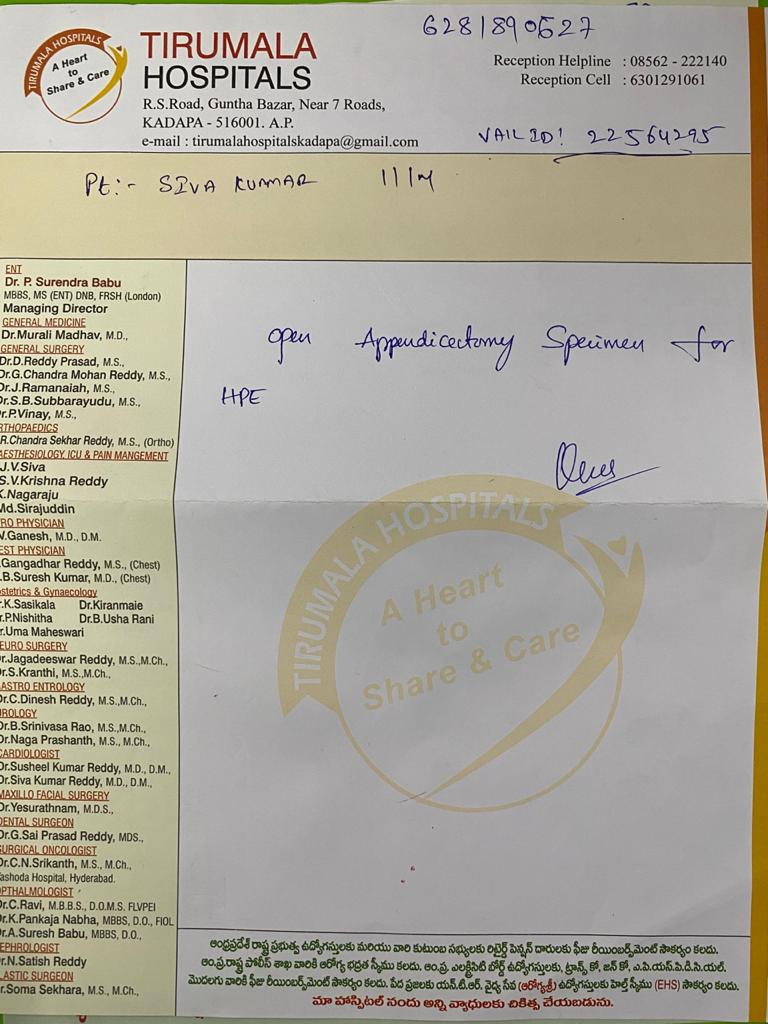 6281890527
TIRUMALA HOSPITALS
A Heart
to
Share & Care
TIRUMALA
HOSPITALS
R.S.Road, Guntha Bazar, Near 7 Roads,
KADAPA - 516001. A.P.
e-mail : tirumalahospitalskadapa@gmail.com
Reception Helpline : 08562 - 222140
Reception Cell : 6301291061
VAIL ID! 22564295
Pt:- SIVA KUMAR 11/M
ENT
Dr. P. Surendra Babu
MBBS, MS (ENT) DNB, FRSH (London)
Managing Director
GENERAL MEDICINE
Dr.Murali Madhav, M.D.,
GENERAL SURGERY
Dr.D.Reddy Prasad, M.S.,
Dr.G.Chandra Mohan Reddy, M.S.,
Dr.J.Ramanaiah, M.S.,
Dr.S.B.Subbarayudu, M.S.,
r.P.Vinay, M.S.,
RTHOPAEDICS
R.Chandra Sekhar Reddy, M.S., (Ortho)
AESTHESIOLOGY, ICU & PAIN MANGEMENT
J.V.Siva
S.V.Krishna Reddy
K.Nagaraju
Md.Sirajuddin
RO PHYSICIAN
V.Ganesh, M.D., D.M.
EST PHYSICIAN
Gangadhar Reddy, M.S., (Chest)
.B.Suresh Kumar, M.D., (Chest)
stetrics & Gynaecology
r.K.Sasikala Dr.Kiranmaie
r.P.Nishitha Dr.B.Usha Rani
r.Uma Maheswari
EURO SURGERY
r.Jagadeeswar Reddy, M.S.,M.Ch.,
r.S.Kranthi, M.S.,M.Ch.,
ASTRO ENTROLOGY
Dr.C.Dinesh Reddy, M.S.,M.Ch.,
ROLOGY
Dr.B.Srinivasa Rao, M.S.,M.Ch.,
Dr.Naga Prashanth, M.S., M.Ch.,
CARDIOLOGIST
Dr.Susheel Kumar Reddy, M.D., D.M.,
Dr.Siva Kumar Reddy, M.D., D.M.,
MAXILLO FACIAL SURGERY
Dr.Yesurathnam, M.D.S.,
DENTAL SURGEON
Dr.G.Sai Prasad Reddy, MDS.,
SURGICAL ONCOLOGIST
Dr.C.N.Srikanth, M.S., M.Ch.,
ashoda Hospital, Hyderabad.
OPTHALMOLOGIST
Dr.C.Ravi, M.B.B.S., D.O.M.S. FLVPEI
Dr.K.Pankaja Nabha, MBBS, D.O., FIOL
Dr.A.Suresh Babu, MBBS, D.O.,
EPHROLOGIST
Dr.N.Satish Reddy
LASTIC SURGEON
r.Soma Sekhara, M.S., M.Ch.,
open Appendicectomy Specimen for
HPE
TIRUMALA HOSPITALS
A Heart
to
Share & Care
ఆంధ్రప్రదేశ్ రాష్ట్ర ప్రభుత్వ ఉద్యోగస్తులకు మరియు వారి కుటుంబ సభ్యులకు రిటైర్డ్ పెన్షన్ దారులకు ఫీజు రీయింబర్స్‌మెంట్ సౌకర్యం కలదు.
ఆం.ప్ర.రాష్ట్ర పోలీస్ శాఖ వారికి ఆరోగ్య భద్రత స్కీము కలదు. ఆం.ప్ర. ఎలక్ట్రిసిటి బోర్డ్ ఉద్యోగస్తులకు, ట్రాన్స్ కో, జన్ కో, ఎ.పి.యస్.పి.డి.సి.యల్.
మొదలగు వారికి ఫీజు రీయింబర్స్‌మెంట్ సౌకర్యం కలదు. పేద ప్రజలకు యన్.టి.ఆర్. వైద్య సేవ (ఆరోగ్యశ్రీ) ఉద్యోగస్తులకు హెల్త్ స్కీము (EHS) సౌకర్యం కలదు.
మా హాస్పిటల్ నందు అన్ని వ్యాధులకు చికిత్స చేయబడును.